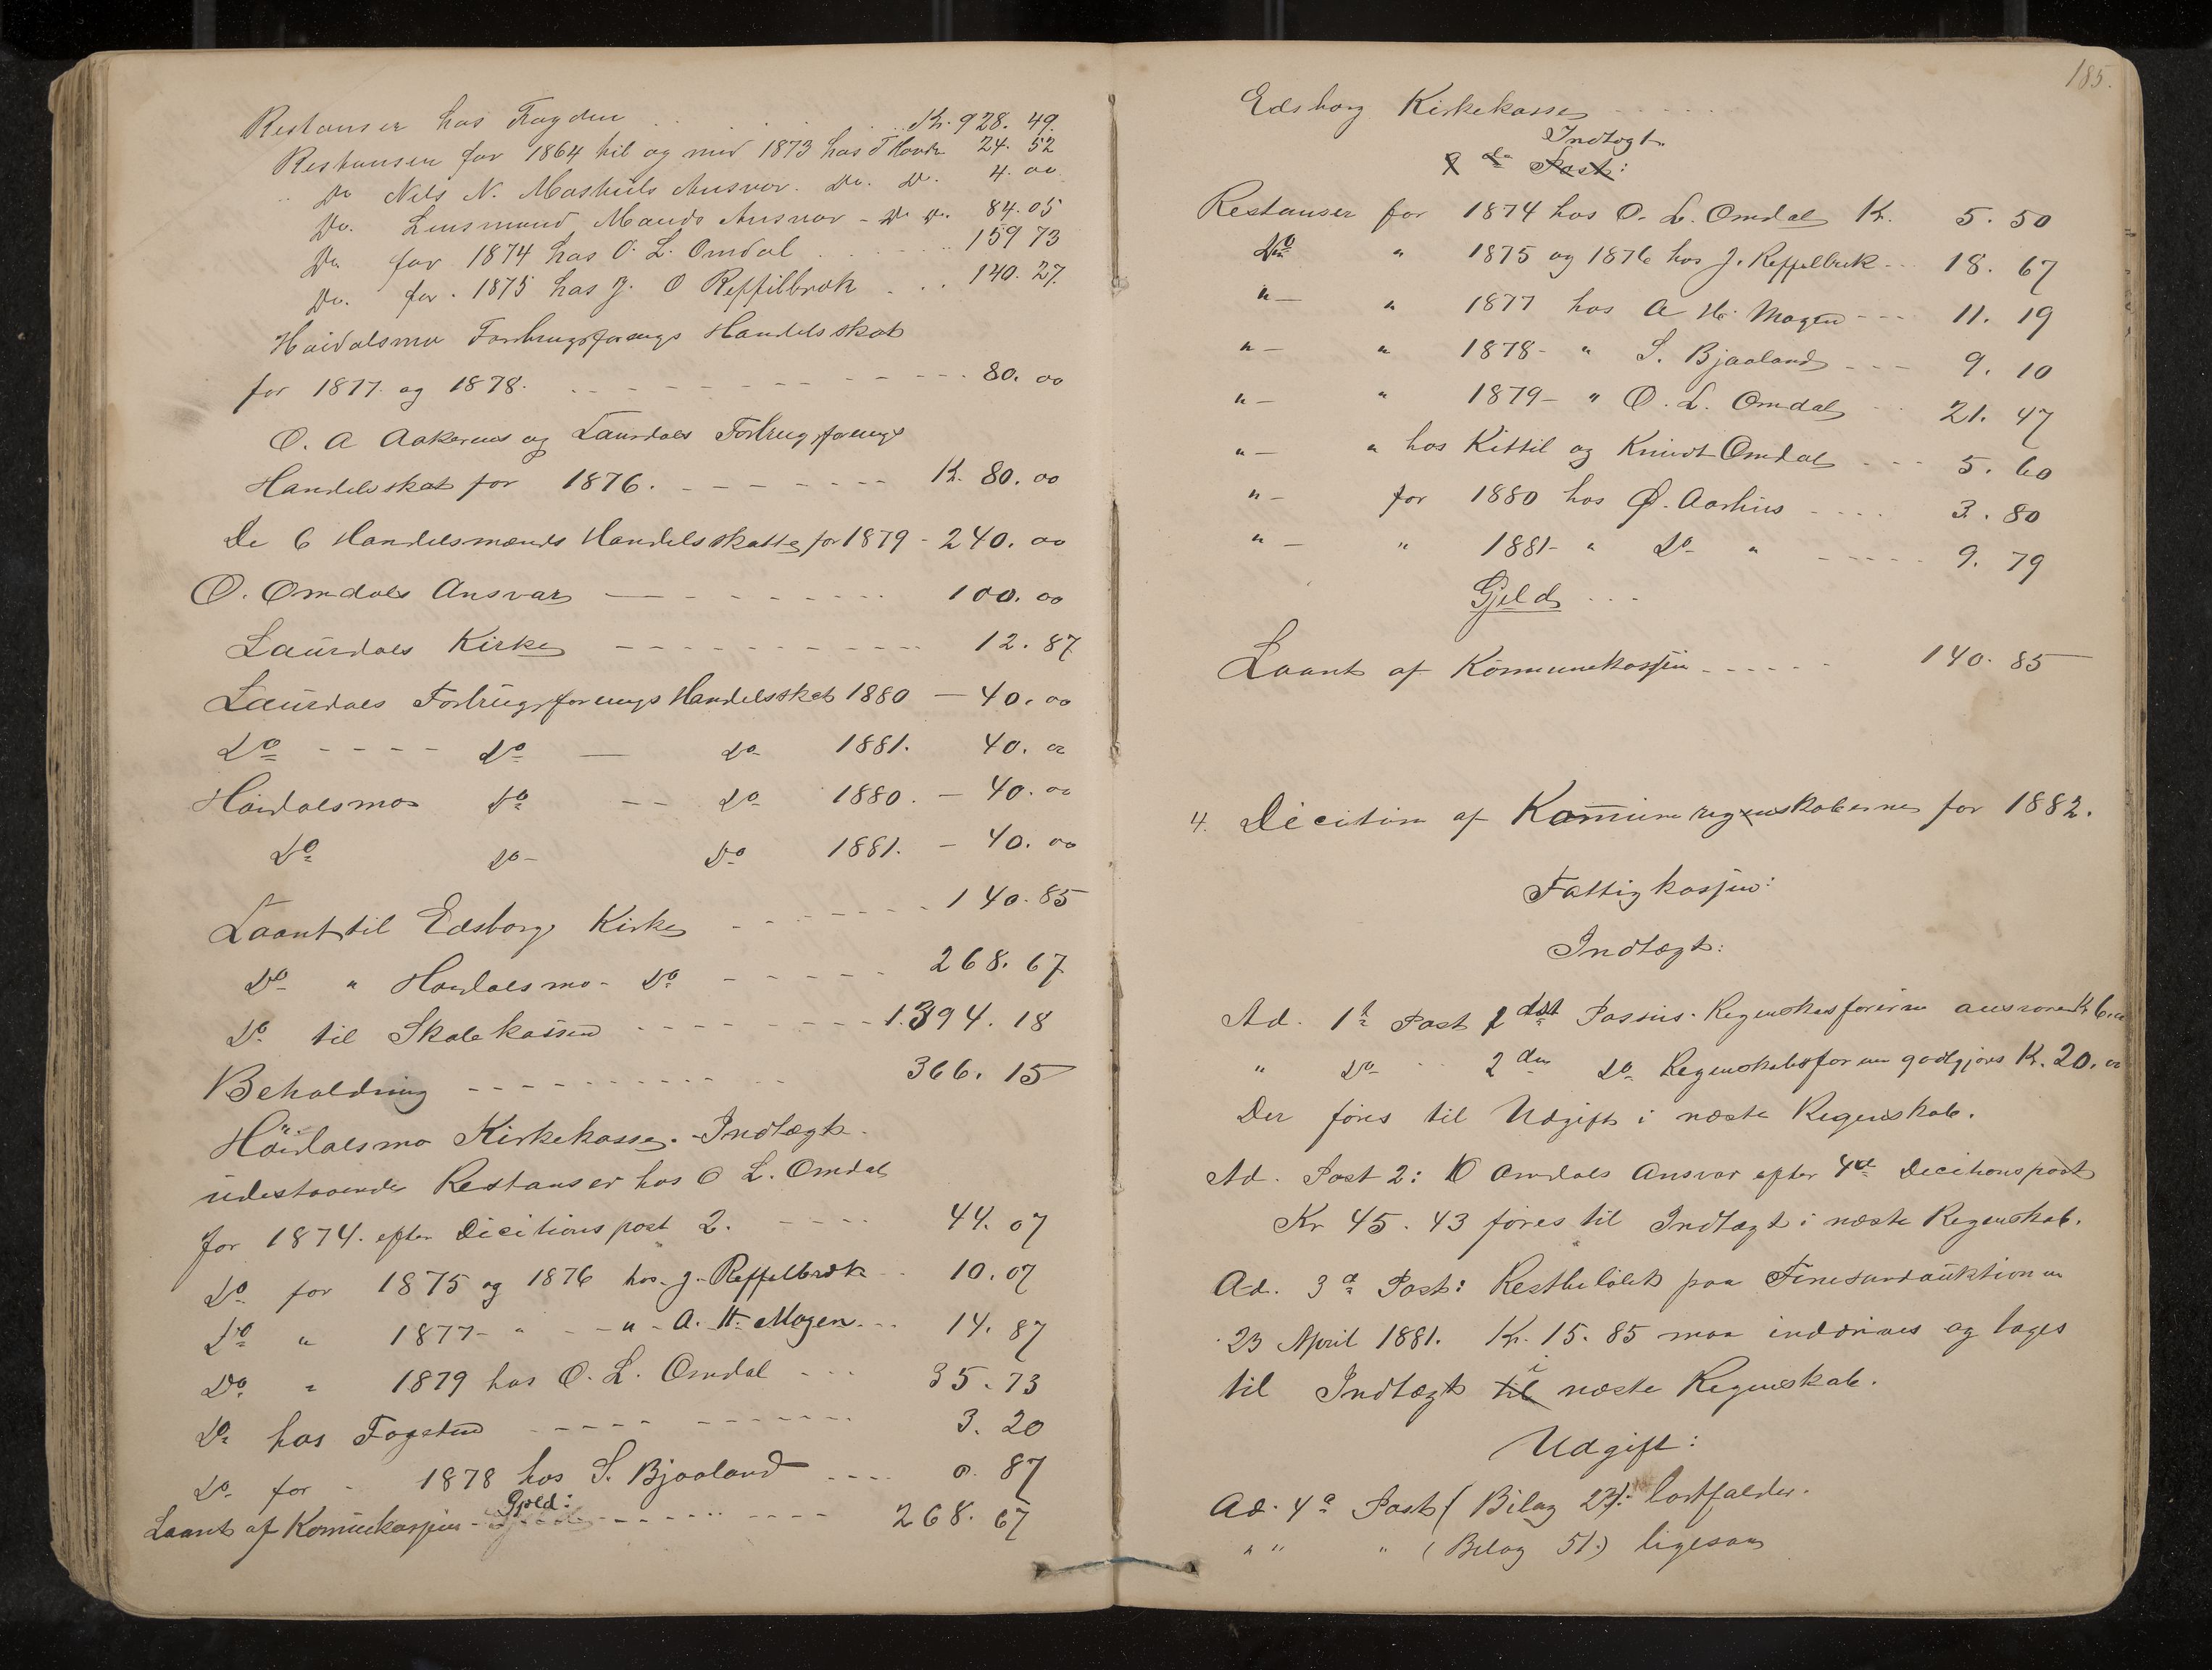 Restanser hos Fogden . . . . Kr. 928. 49.
Restansen for 1864 til og med 1873 hos T Hovde 24. 52
" Do Nils N. Ansvar. Do. Do. 4. 00
Do. Lensmand Mands Ansvar - Do Do. 84. 05
Do for 1874 hos O. L. Omdal . . . 159 73
Do. for. 1875 hos J. O Reffelbræk . . . 140. 27.
Høidalsmo Forbrugsforengs Handelsskat
for 1877 og 1878. - - - - 80. 00
O. A Aakerens og Laurdals Forbrugsforengs
Handelsskat for 1876. - - - - Kr. 80. 00
De 6 Handelsmænds Handelsskatte for 1879 - 240. 00
O. Omdals Ansvar - - - - 100. 00
Laurdals Kirke - - - - 12. 87
Laurdals Forbrugsforengs Handelsskat 1880 - 40. 00
Do - - - - Do — Do 1881. 40. 00
Høidalsmo Do - - Do 1880. - 40. 00
Do Do - Do 1881. - 40. 00
Laant til Edsborg Kirke - - - - 140. 85
Do " Høidalsmo - Do - - - - 268. 67
Do til Skolekassen - - - - 1.394. 18
Beholdning - - - - 366. 15
Høidalsmo Kirkekasse. - Indtægt.
udestaaende Restanser hos O L. Omdal
for 1874. efter Decitionspost 2. - - - - 44. 07
Do for 1875 og 1876 hos J. Reffelbræk - - 10. 07
Do " 1877 - " - - " - A. H. Mogen. - - 14. 87
Do. " 1879 hos O. L. Omdal - - - 35. 73
Do. hos Fogden - - - - 3. 20
Do. for - 1878 hos S. Bjaaland - - - - 0. 87
Gjeld:
Laant af Komunekassen - - - - 268. 67
185.
Edsborg Kirkekasse - - - -
Indtægt.
2 de Post:
Restanser for 1874 hos O. L. Omdal Kr. 5. 50
Do " 1875 og 1876 hos J. Reffelbræk - - 18. 67
" - " 1877 hos A H. Mogen - - - 11. 19
" - " 1878 - " S. Bjaaland - - - 9. 10
" - " 1879 - " O. L. Omdal - - 21. 47
" - " hos Kittil og Knudt Omdal - - - 5. 60
" - for 1880 hos Ø. Aarhus - - - - 3. 80
" - " 1881 - " Do " - - - - 9. 79
Gjeld - - -
Laant af Kommunekassen - - - - - 140. 85
4. Decition af Komuneregnskaberne for 1882.
Fattigkassen:
Indtægt:
Ad. 1ste Post 1 det Passus. Regnskabsføreren ansvarer Kr 6.00
" Do - - 2 den Do Regnskabsføreren godtgjøres Kr. 20. 00
Der føres til Udgift i næste Regnskab.
Ad. Post 2: O Omdals Ansvar efter 4de Decitionspost
Kr 45. 43 føres til Indtægt i næste Regnskab.
Ad. 3 de Post: Restbeløbet paa auktionen
23 April 1881. Kr. 15. 85 maa inddrives og tages
til Indtægt til i næste Regnskab.
Udgift:
Ad. 4 de Post ( Bilag 23): bortfalder.
" " " ( Bilag 51.) ligesaa